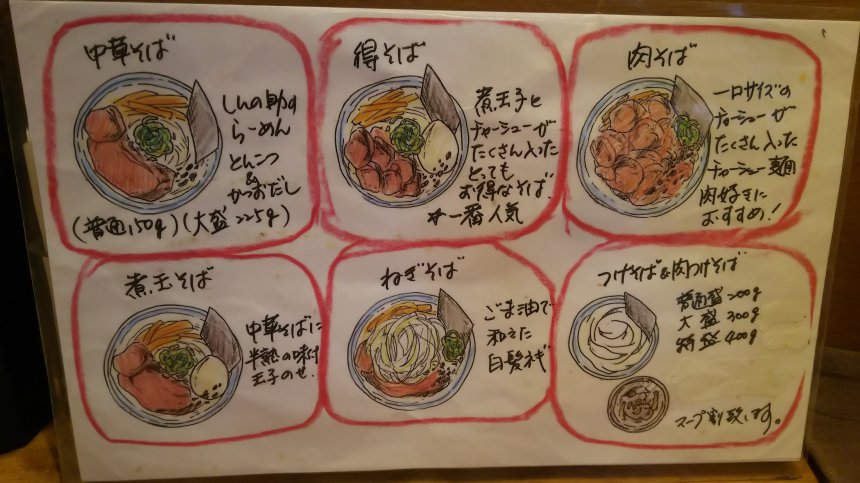 中華そば
しんの助の
らーめん
とんこつ
&
かつおだし
(普通150g)(大盛225g)
得そば
煮玉子と
チャーシューが
たくさん入った
とっても
お得なそば.
#一番人気
肉そば
一口サイズの
チャーシューが
たくさん入った
チャーシュー麺
肉好きに
おすすめ!
煮玉そば
中華そばに
半熟の味付
玉子のせ.
ねぎそば
ごま油で
和えた
白髪ネギ
つけそば&肉つけそば
普通盛200g
大盛300g
特盛400g
スープ割致します。